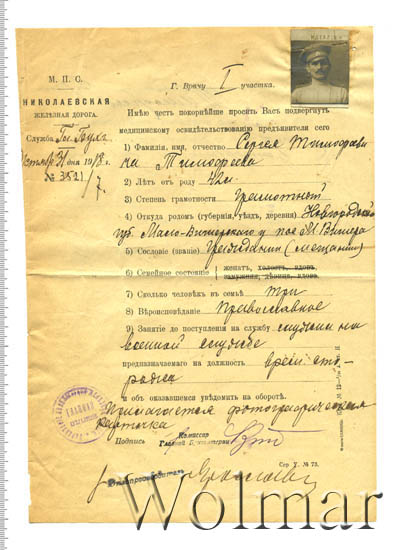 М. П. С.
НИКОЛАЕВСКАЯ
ЖЕЛѢЗНАЯ ДОРОГА.
Служба
1918 г.
№ 3521/7
Г. Врачу I участка.
Имѣю честь покорнѣйше просить Васъ подвергнуть
медицинскому освидѣтельствованію предъявителя сего
1) Фамилія, имя, отчество Сергея Тимофееви
ча Тимофеева
2) Лѣтъ отъ роду 42 л.
3) Степень грамотности Грамотный
4) Откуда родомъ (губернія, уѣздъ, деревня) Новгородской
губ. Мало-Вишерскаго у пос М. Вишера
5) Сословіе (званіе) Гражданин (мещанин)
6) Семейное состояніе { женатъ, холостъ, вдовъ
замужняя, дѣвица, вдова
7) Сколько человѣкъ въ семьѣ Три
8) Вѣроисповѣданіе Православное
9) Занятіе до поступленія на службу служил на
военной службе
предназначаемаго на должность врем сто-
рожа
и объ оказавшемся увѣдомить на оборотѣ.
Прилагается фотографическая
карточка
Подпись
Комиссар
Сер. X. № 73.
Wolmar